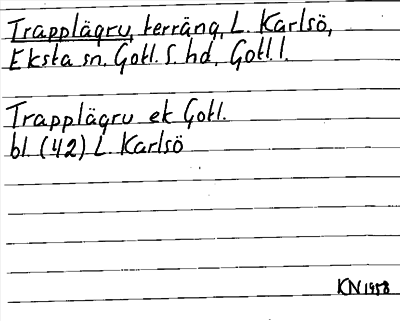 Trapplägru, terräng, L. Karlsö,
Eksta sn. Gotl. S. hd, Gotl. l.
Trapplägru ek Gotl.
bl. (42) L. Karlsö
KN 1958